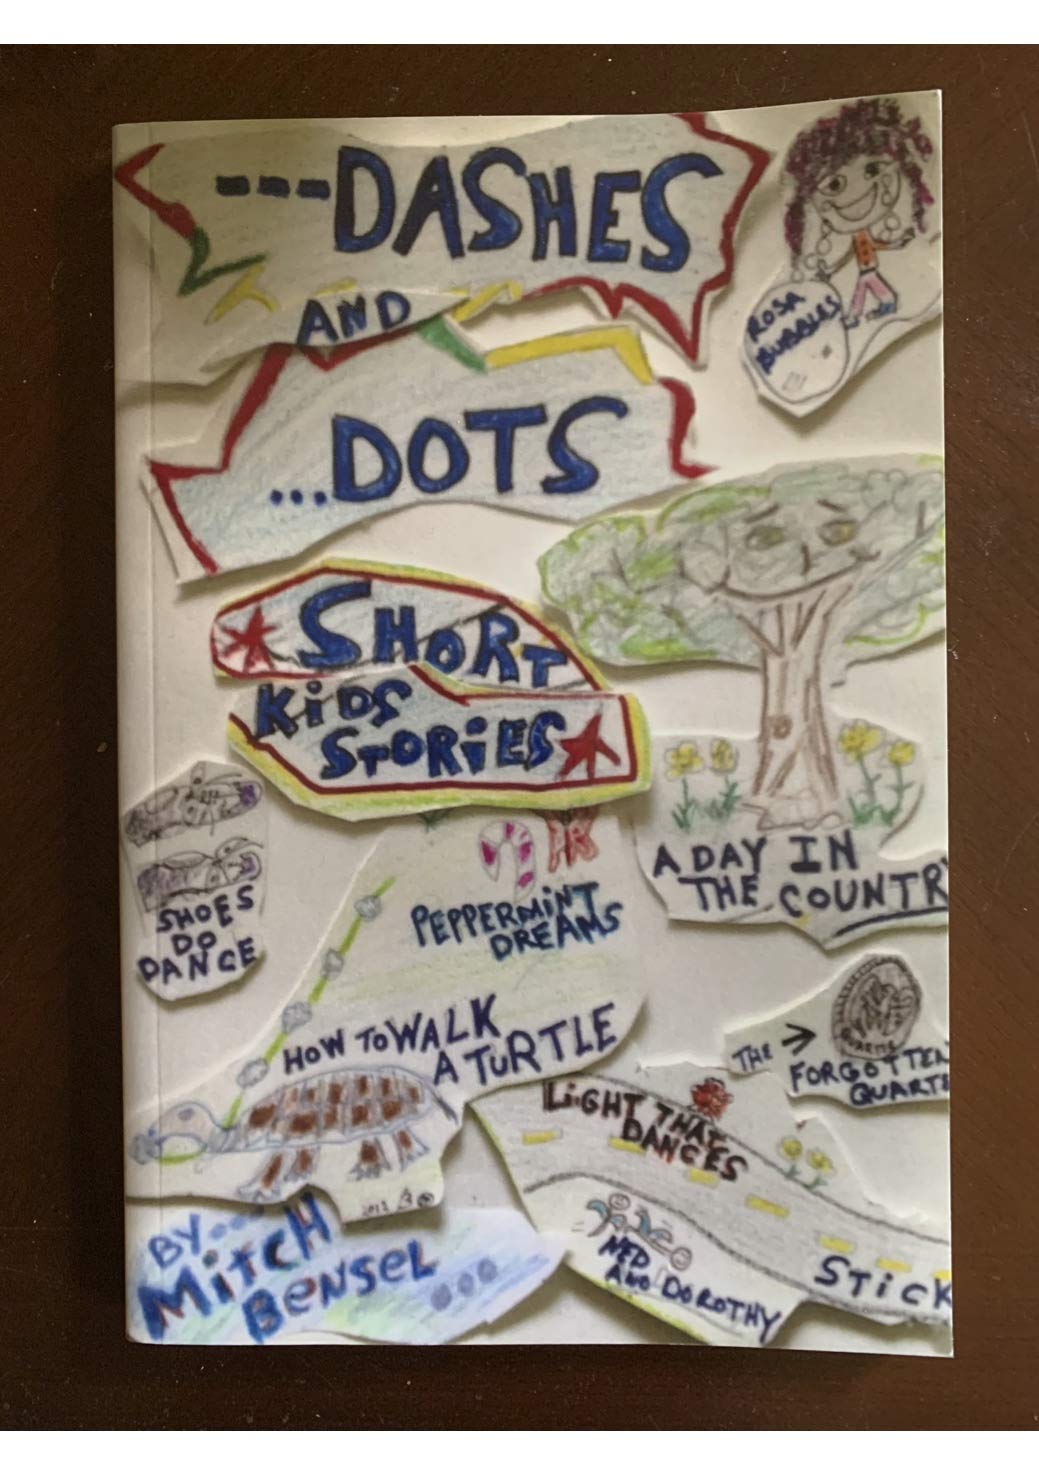 ---DASHES
AND
...DOTS
ROSA
BUBBLES
*SHORT
KiDS
STORiES*
A DAY IN
THE COUNTRY
SHOES
DO
DANCE
PEPPERMiNT
DREAMS
HOW TO WALK
A TURTLE
THE >
FORGOTTEN
QUARTE
LiGHT THAT
DANCES
NED
AND DOROTHY
STiCK
2012
BY---
MiTCH
BENSEL ...